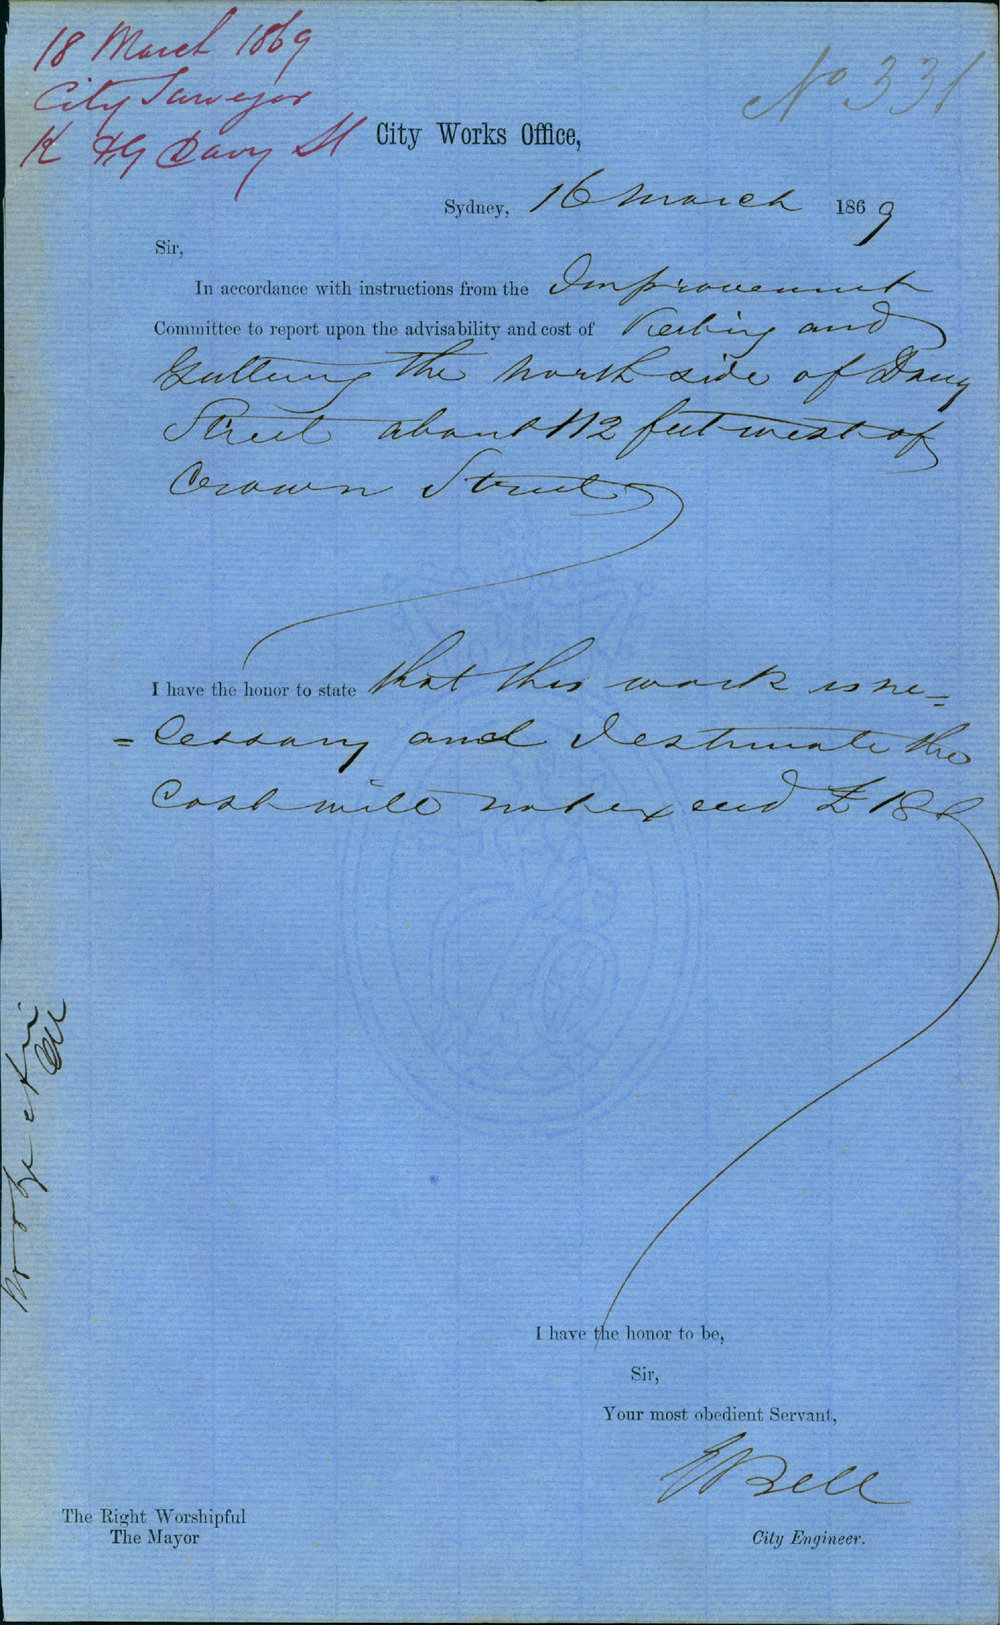 18 March 1869
City Surveyor
K & G Davy St
No 331
City Works Office,
Sydney, 16 March 1869
Sir,
In accordance with instructions from the Improvement
Committee to report upon the advisability and cost of Kerbing and
Guttering the North side of Davy
Street about 112 feet west of
Crown Street
I have the honor to state that this work is ne-
=cessary and I estimate the
Cost will not exceed £18
I have the honor to be,
Sir,
Your most obedient Servant,
E Bell
City Engineer.
The Right Worshipful
The Mayor